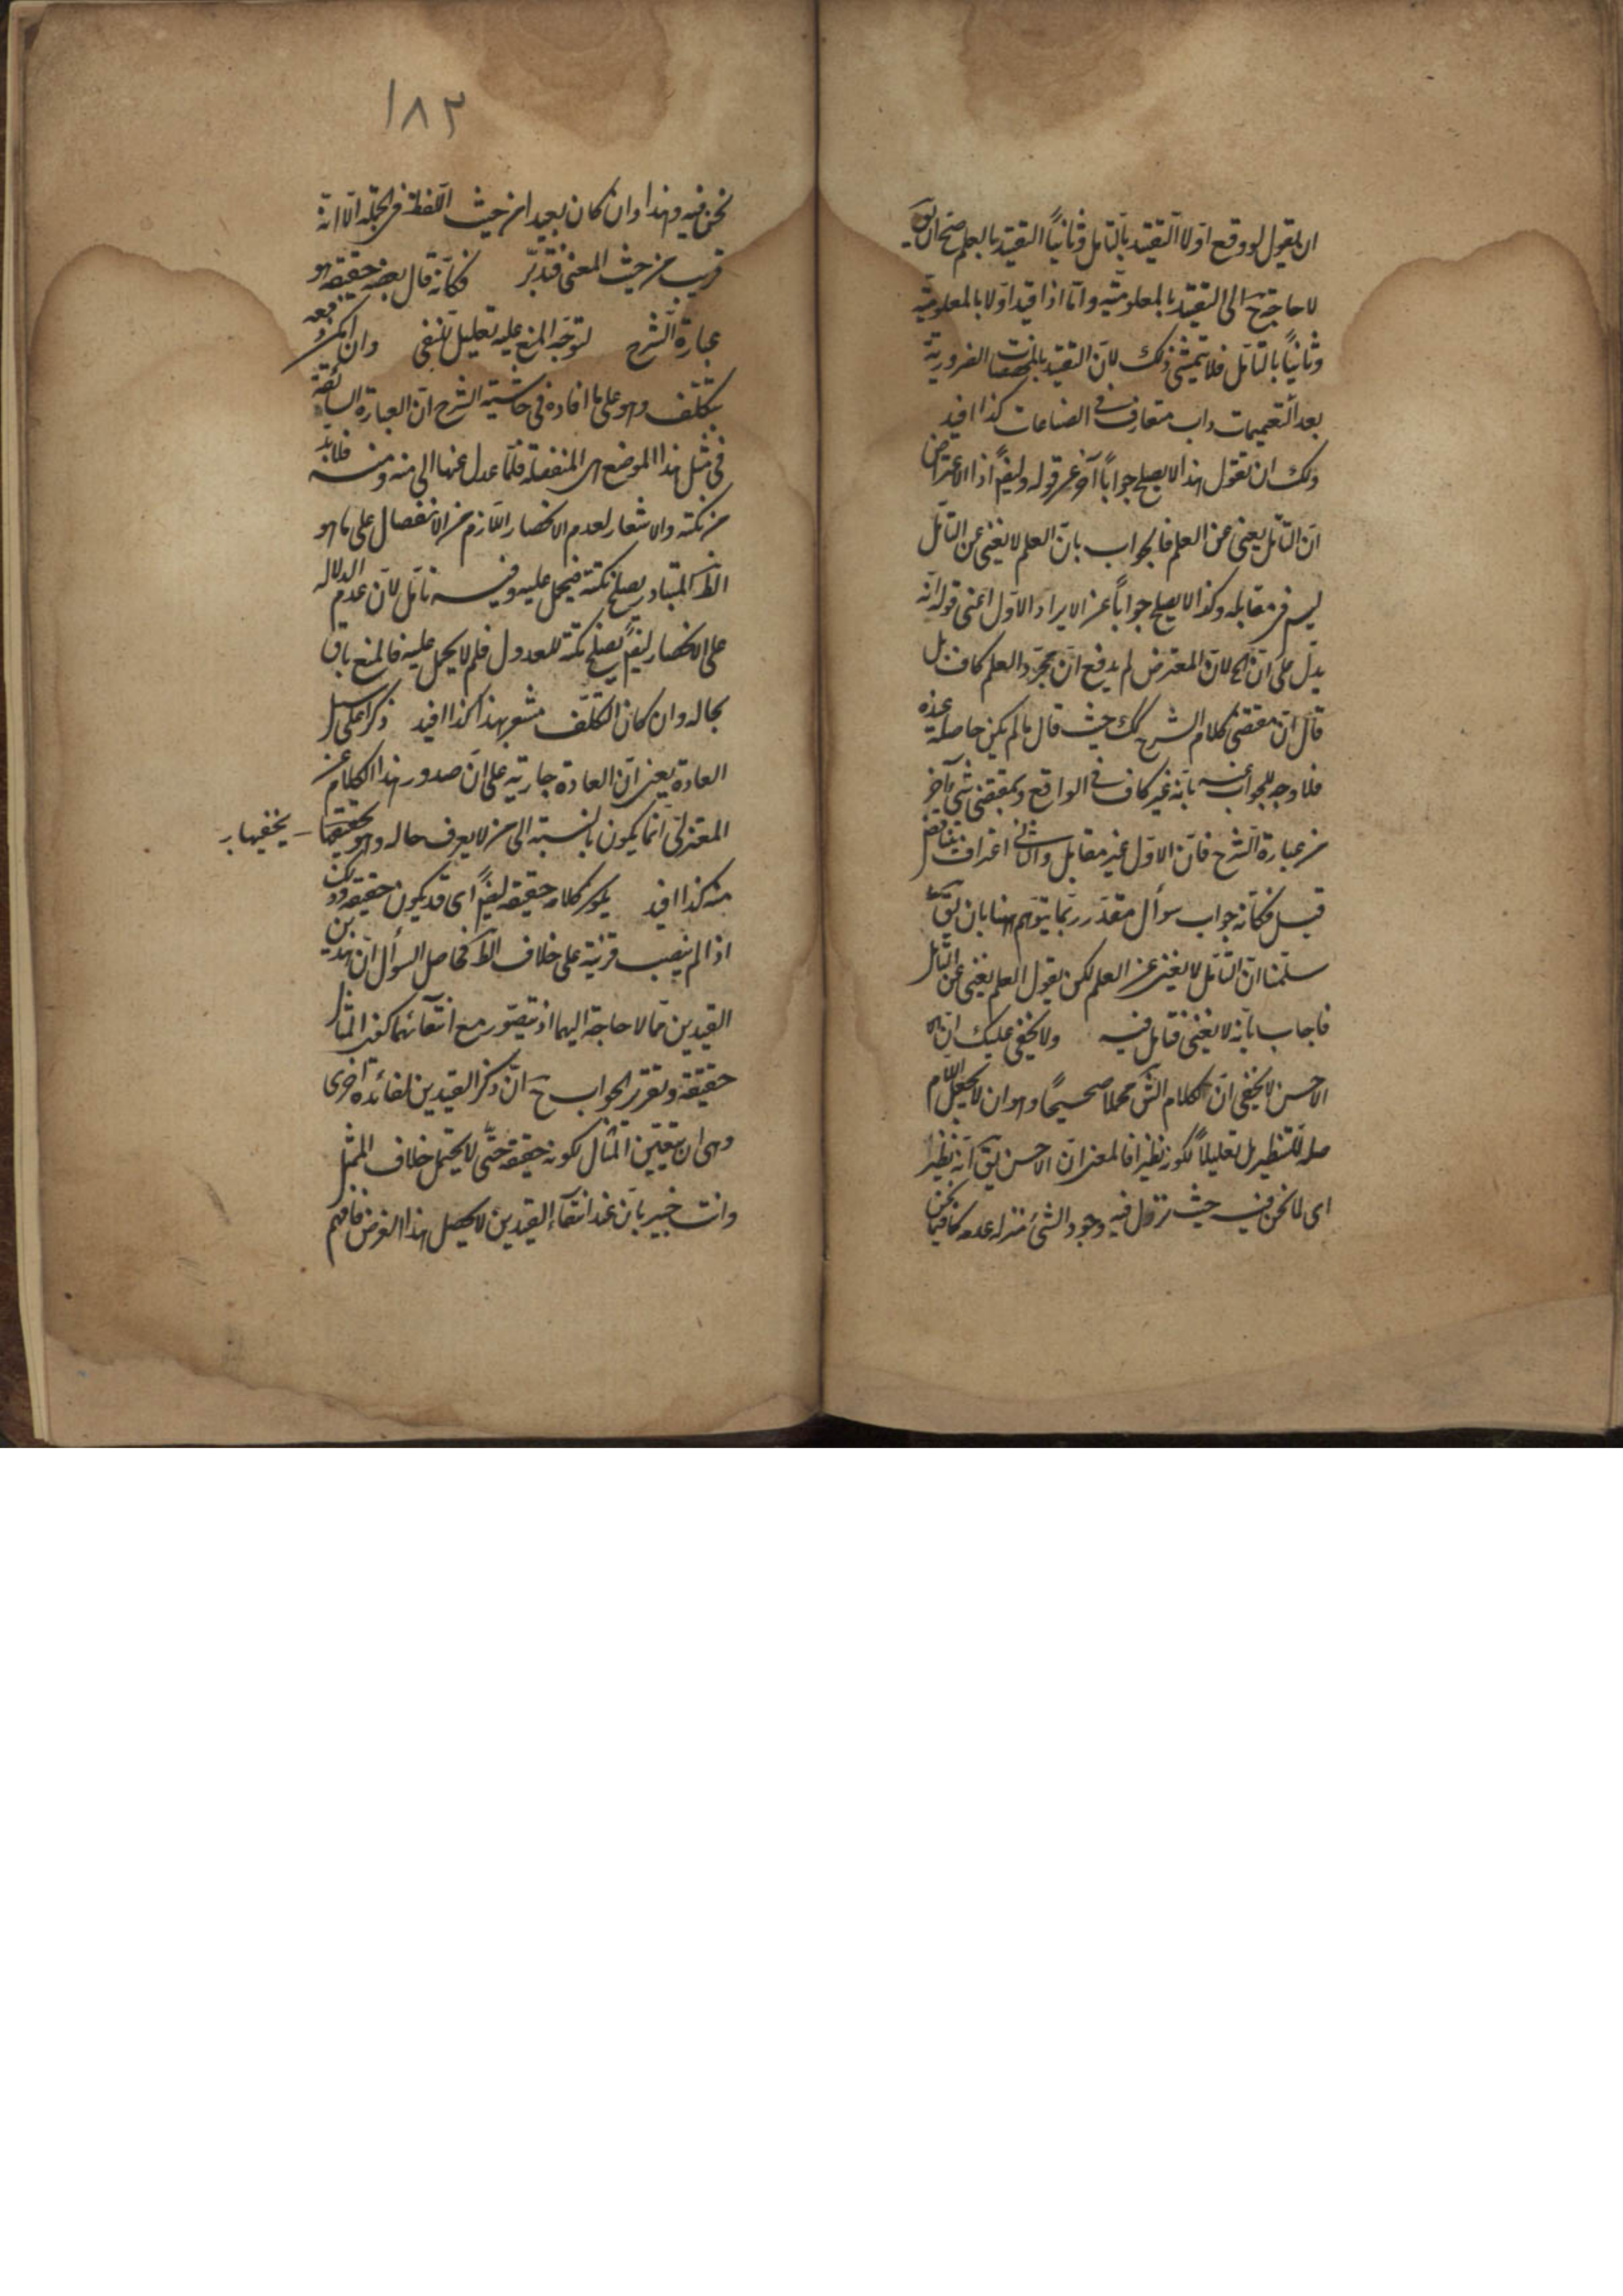 ان يقول لو وقع اولا التقيد بالتامل وثانياً التقيد بالعلم صح ان يورد
لا حاجة ح الى التقيد بالمعلومية واما اذا قيد اولا بالمعلومية
وثانياً بالتامل فلا يتمشى ذلك لان التقيد الضرورية
بعد التعميمات داب متعارف فى الصناعات كذا افيد
ولك ان تقول هذا لا يصلح جواباً آخر عن قوله وايضً اذ الاعتراض
ان التامل يغنى عن العلم فالجواب بان العلم لا يغنى عن التامل
ليس فى مقابله وكذا لا يصلح جواباً عن الايراد الاول اعنى قوله انه
يدل على ان الخ لان المعترض لم يدفع ان مجرد العلم كاف بل
قال ان مقتضى كلام الشرح كك حيث قال ما لم يكن حاصله عنده
فلا وجه للجواب عنه بانه غير كاف فى الواقع وبمقتضى شىء آخر
من عبارة الشرح فان الاول غير مقابل والثانى اعتراف بتناقض
قيل فكانه جواب سوأل مقدر ربما يتوهم ههنا بان يق
سلمنا ان التامل لا يغنى عن العلم لكن يقول العلم يغنى عن التامل
فاجاب بانه لا يغنى فتامل فيه ولا يخفى عليك ان
الاحسن لا يخفى ان لكلام الش محملا صحيحاً وهو ان لا يجعل اللام
صله للتنظير بل تعليلاً لكونه نظيرا فالمعنى ان الاحسن يق انه نظير
اى لما نحن فيه حيث نزل فيه وجود الشئ منزله عدمه كما فيما نحن
١٨٣
نحن فيه وهذا وان كان بعيدا من حيث اللفظ فى الجمله الا انه
قريب من حيث المعنى فتدبر فكانه قال بعضه حقيقه هو
عبارة الشرح لتوجه المنع عليه تعليل للنفى وان امكن دفعه
بتكلف وهو على ما افاده فى حاشية الشرح ان العبارة السائغة
فى مثل هذا الموضع اى المنفصلة فلما عدل عنها الى منه ومنه فلابد
من نكته والاشعار لعدم الانحصار اللازم من الانفصال على ما هو
الظ المتبادر يصلح نكتة فيحمل عليه وفيه تامل لان عدم الدلاله
على الانحصار ايضً يصلح نكتة للعدول فلم لا يحمل عليه فالمنع باق
بحاله وان كان التكلف مشعر بهذا كذا افيد ذكرا على سبيل
العادة يعنى ان العادة جارية على ان صدور هذا الكلام عن
المعتزلى انما يكون بالنسبة الى من لا يعرف حاله وهو يخفيها
منه كذا افيد يكون كلامه حقيقه ايضً اى قد يكون حقيقه وذلك
اذا لم ينصب قرينة على خلاف الظ فحاصل السوأل ان هذين
القيدين مما لا حاجة اليهما اذ يتصور مع انتفائهما كون المثال
حقيقة وتقرير الجواب ح ان ذكر القيدين لفائدة اخرى
وهى ان يتعين المثال لكونه حقيقة حتى لا يحتمل خلاف الممثل
وانت خبير بان عند انتفاء القيدين لا يحصل هذا الغرض فافهم